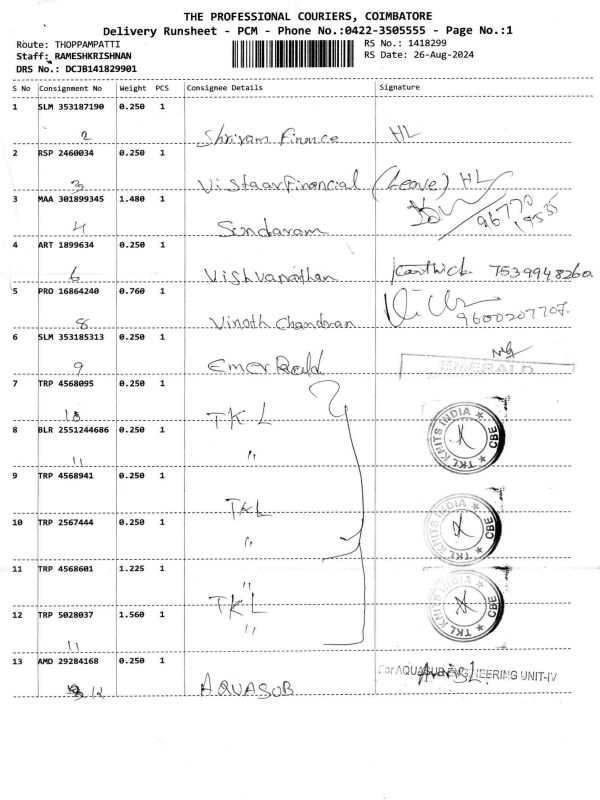 THE PROFESSIONAL COURIERS, COIMBATORE
Delivery Runsheet - PCM - Phone No.:0422-3505555 - Page No.:1
Route: THOPPAMPATTI RS No.: 1418299
Staff: RAMESHKRISHNAN RS Date: 26-Aug-2024
DRS No.: DCJB141829901
S No Consignment No Weight PCS Consignee Details Signature
1 SLM 353187190 0.250 1
2 Shriram Finance HL
2 RSP 2460034 0.250 1
3 Vistaar Financial (Leave) HL
3 MAA 301899345 1.480 1
4 Sundaram 96770
4 ART 1899634 0.250 1
6 Vishvanathan Karthick 7539948260
5 PRO 16864240 0.760 1
8 Vinoth Chandran 9600207707
6 SLM 353185313 0.250 1
9 Emerald EMERALD
7 TRP 4568095 0.250 1
10 TKL TKL KNITS INDIA ★ CBE ★
8 BLR 2551244686 0.250 1
11 "
9 TRP 4568941 0.250 1
TKL TKL KNITS INDIA ★ CBE ★
10 TRP 2567444 0.250 1
"
11 TRP 4568601 1.225 1
"
TKL TKL KNITS INDIA ★ CBE ★
12 TRP 5028037 1.560 1
11 "
13 AMD 29284168 0.250 1
12 AQUASUB For AQUASUB ENGINEERING UNIT-IV